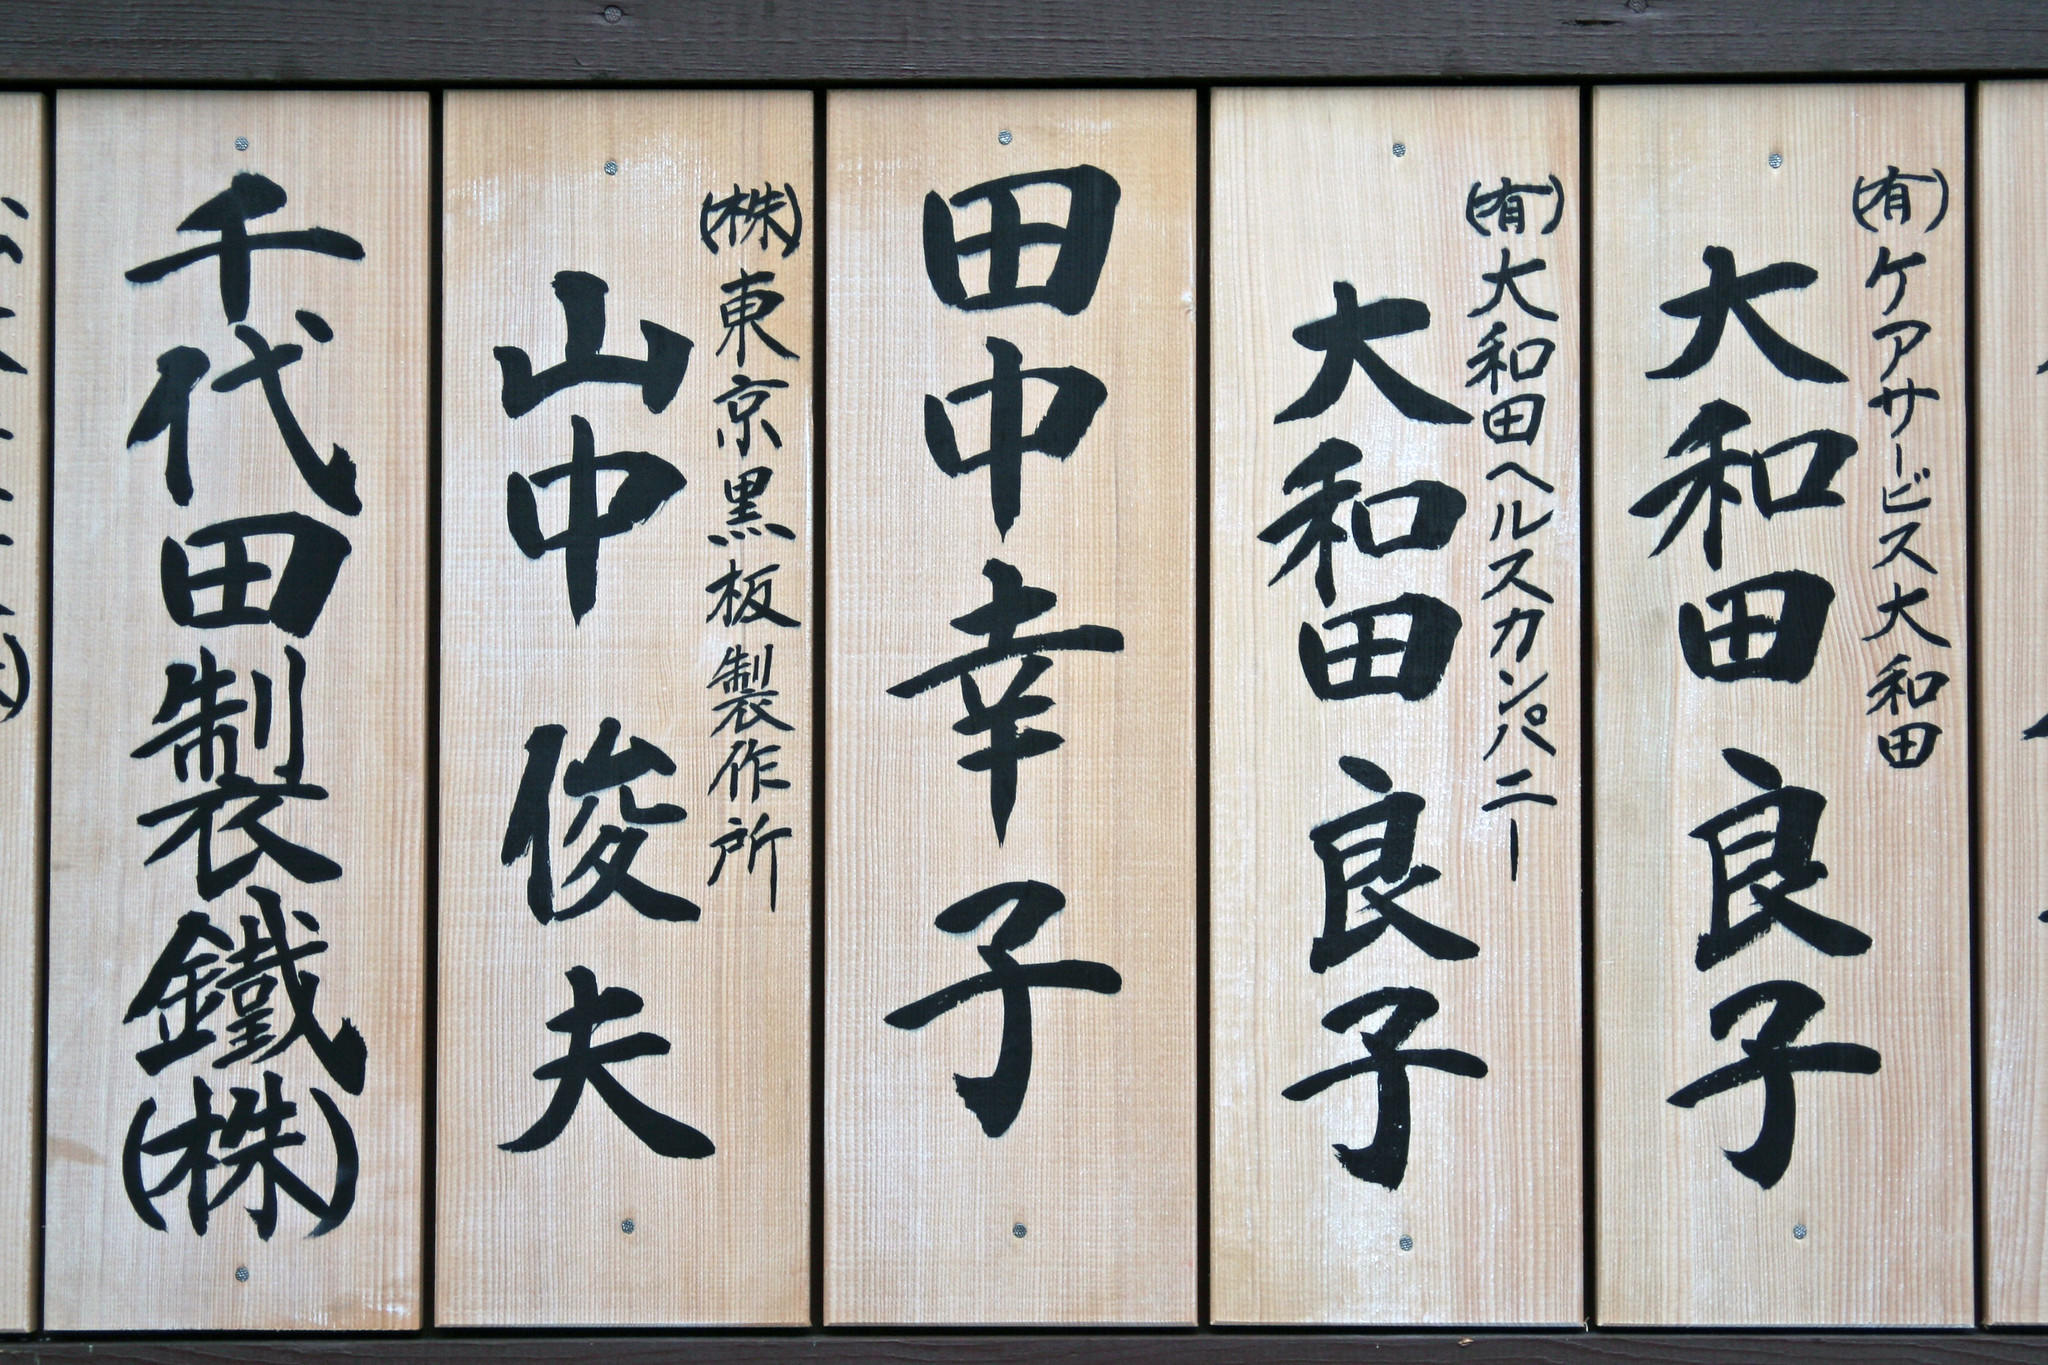 (有)ケアサービス大和田
大和田良子
(有)大和田ヘルスカンパニー
大和田良子
田中幸子
(株)東京黒板製作所
山中俊夫
千代田製鐵(株)